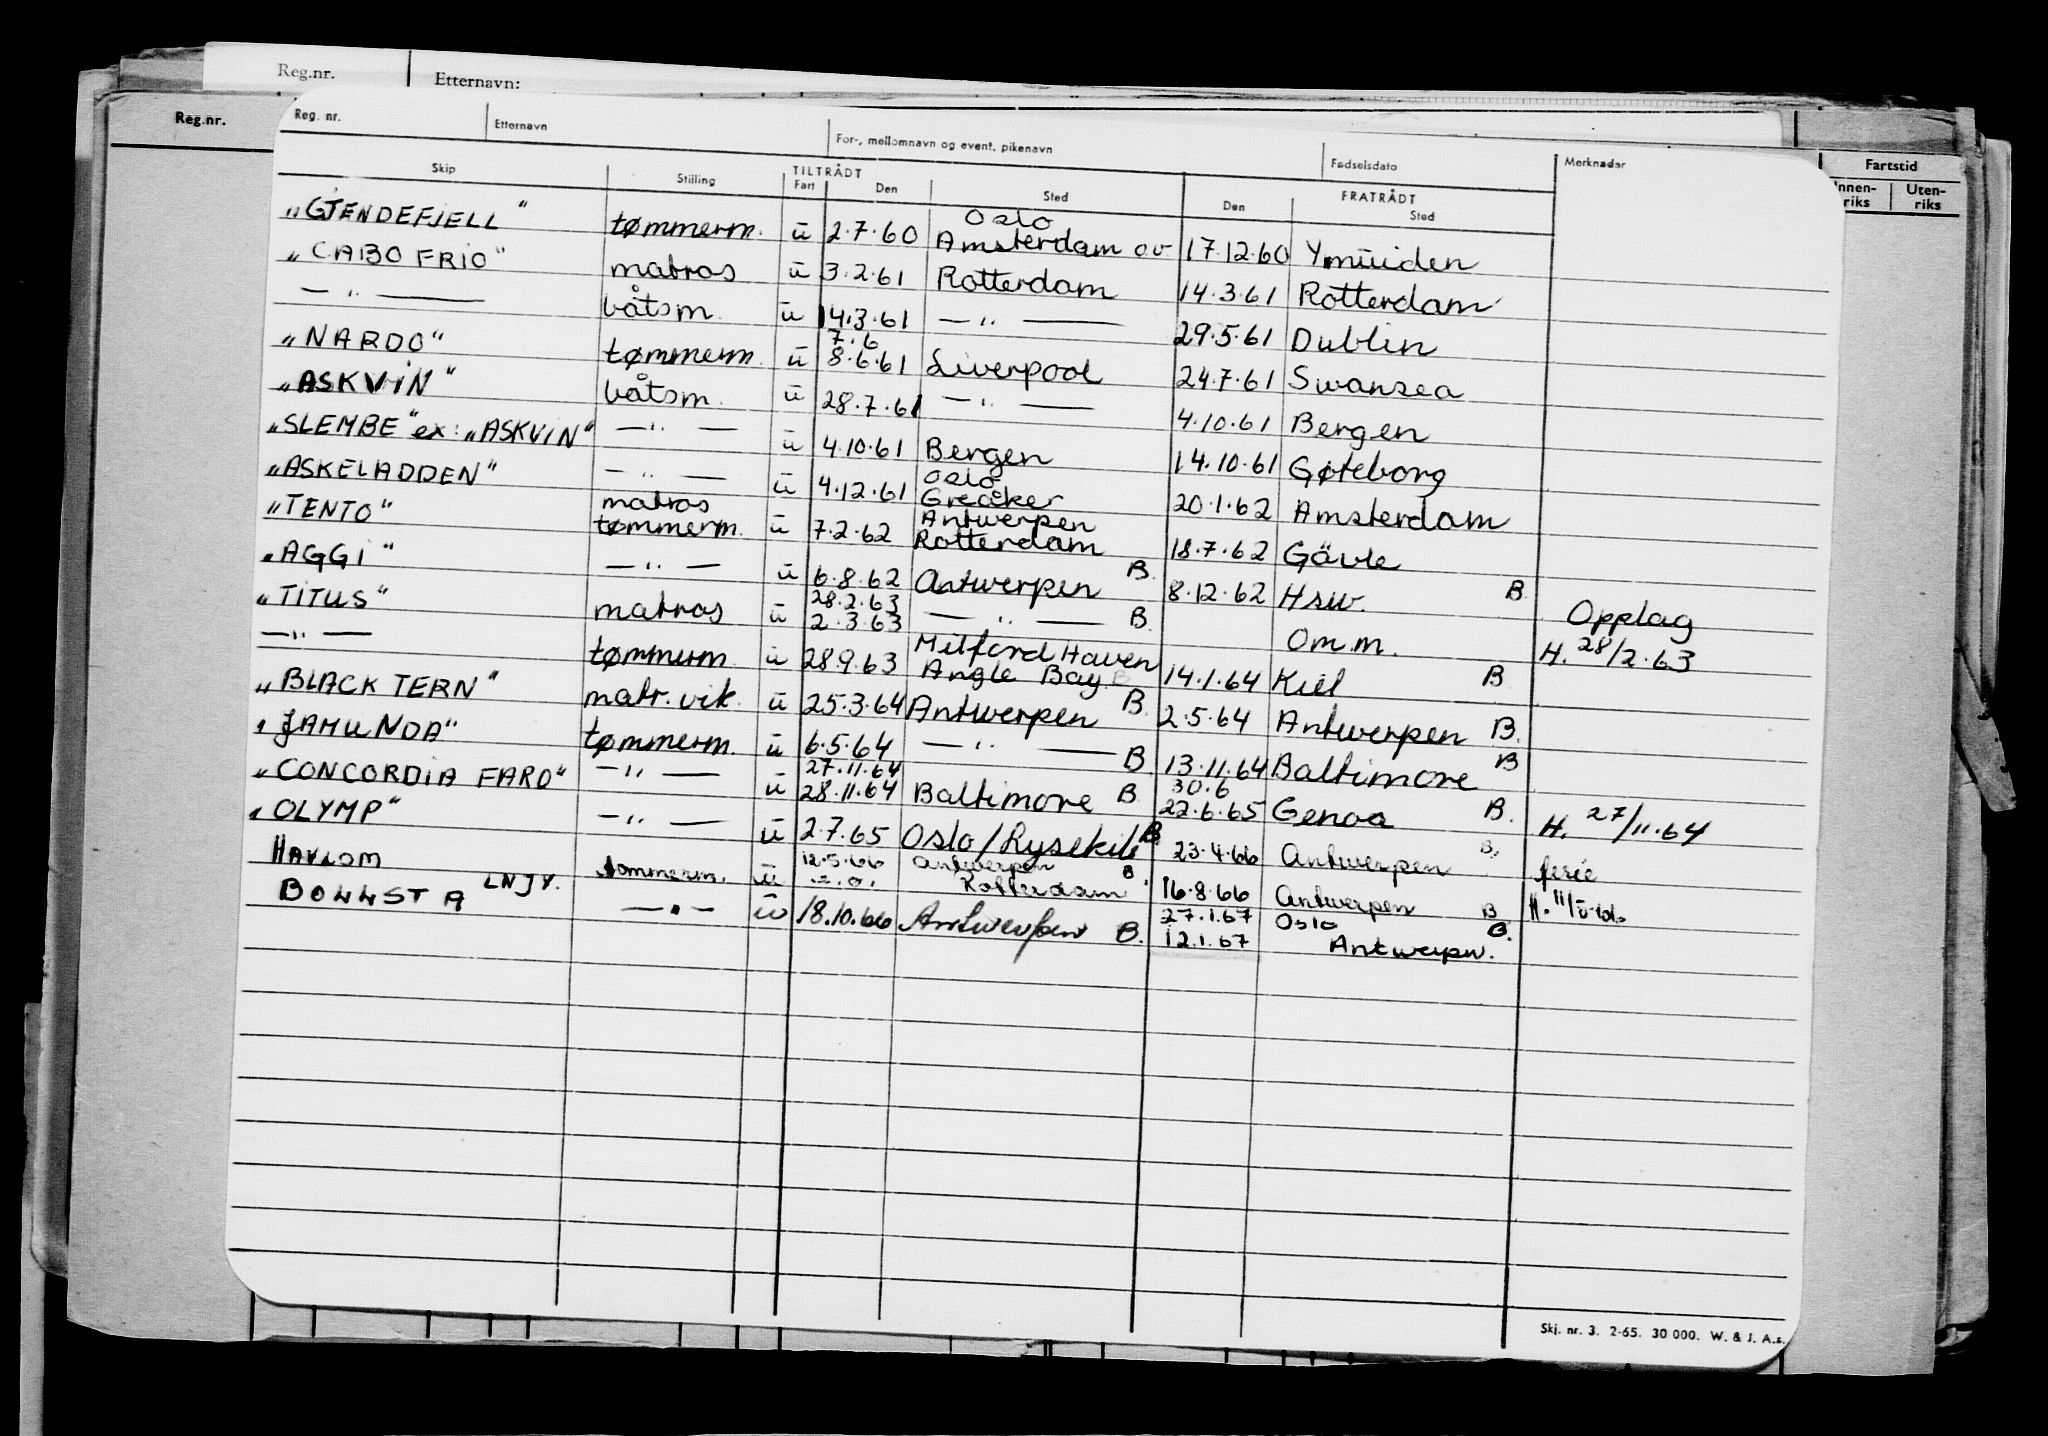 Reg.nr. Etternavn:
Reg.nr.
Reg. nr. Etternavn For-, mellomnavn og event. pikenavn Fødselsdato Merknader Fartstid
Innen-riks Uten-riks
Skip Stilling TILTRÅDT Fart Den Sted FRATRÅDT Den Sted
„GJENDEFJELL" tømmerm. ū 2.7.60 Oslo Amsterdam ov 17.12.60 Ymuiden
„CABO FRIO" matros ū 3.2.61 Rotterdam 14.3.61 Rotterdam
— „ — båtsm. ū 14.3.61 — „ — 29.5.61 Dublin
„NARDO" tømmerm. ū 7.6 8.6.61 Liverpool 24.7.61 Swansea
„ASKVIN" båtsm. ū 28.7.61 — „ — 4.10.61 Bergen
„SLEMBE" ex: „ASKVIN" — „ — ū 4.10.61 Bergen 14.10.61 Gøteborg
„ASKELADDEN" — „ — ū 4.12.61 Oslo Greåker 20.1.62 Amsterdam
„TENTO" matros tømmerm. ū 7.2.62 Antwerpen Rotterdam 18.7.62 Gävle
„AGGI" — „ — ū 6.8.62 Antwerpen B. 8.12.62 Hsw. B. Opplag
„TITUS" matros ū 28.2.63 2.3.63 — „ — B. Om.m. H. 28/2.63
— „ — tømmerm. ū 28.9.63 Milford Haven Angle Bay B 14.1.64 Kiel B
„BLACK TERN" matr. vik. ū 25.3.64 Antwerpen B. 2.5.64 Antwerpen B.
„JAMUNDA" tømmerm. ū 6.5.64 — „ — B. 13.11.64 Baltimore B
„CONCORDIA FARO" — „ — ū 27.11.64 28.11.64 Baltimore B. 30.6 22.6.65 Genoa B. H. 27/11.64
„OLYMP" — „ — ū 2.7.65 Oslo/Lysekil B. 23.4.66 Antwerpen B. ferie
HAVLOM tømmerm. ū 12.5.66 Antwerpen Rotterdam B. 16.8.66 Antwerpen B H. 11/5.66
BOLLSTA LNJY. — „ — ū 18.10.66 Antwerpen B. 27.1.67 12.1.67 Oslo B. Antwerpn.
Skj. nr. 3. 2-65. 30 000. W. & J. A.s.